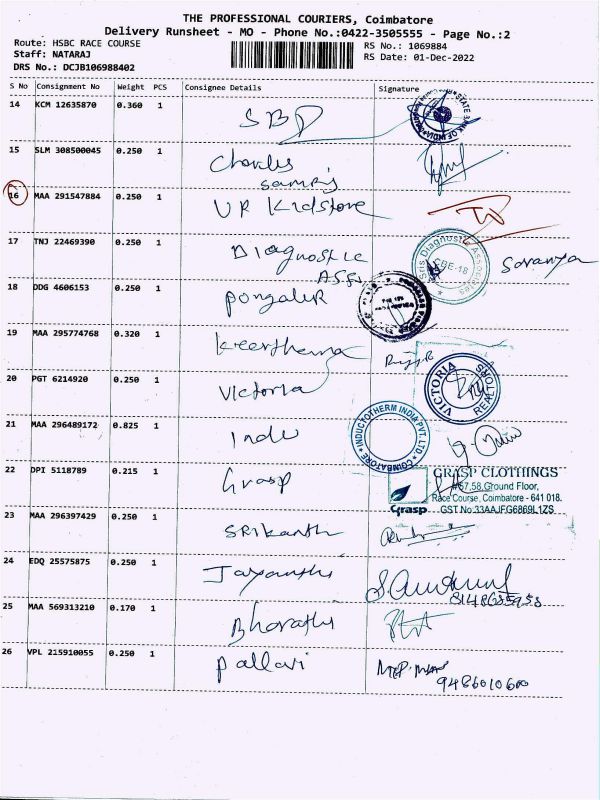 THE PROFESSIONAL COURIERS, Coimbatore
Delivery Runsheet - MO - Phone No.:0422-3505555 - Page No.:2
Route: HSBC RACE COURSE
RS No.: 1069884
Staff: NATARAJ
RS Date: 01-Dec-2022
DRS No.: DCJB106988402
S No Consignment No Weight PCS Consignee Details Signature
14 KCM 12635870 0.360 1
15 SLM 308500045 0.250 1 Charles
16 MAA 291547884 0.250 1 UR Kidstore
17 TNJ 22469390 0.250 1 Diagnostic
Sris Diagnostic Associates CBE-18
Soranya
18 DDG 4606153 0.250 1 Pongalur
19 MAA 295774768 0.320 1 Keerthema
20 PGT 6214920 0.250 1 Victoria
VICTORIA REALTORS
21 MAA 296489172 0.825 1 Indu
INDUCTOTHERM INDIA PVT. LTD COIMBATORE
22 DPI 5118789 0.215 1 Grasp
GRASP CLOTHINGS
#57,58,Ground Floor,
Race Course, Coimbatore - 641 018.
Grasp GST No:33AAJFG6869L1ZS
23 MAA 296397429 0.250 1 SRikanth
24 EDQ 25575875 0.250 1 Jayanthi
25 MAA 569313210 0.170 1 Bharathi
26 VPL 215910055 0.250 1 Pallavi
9486010600